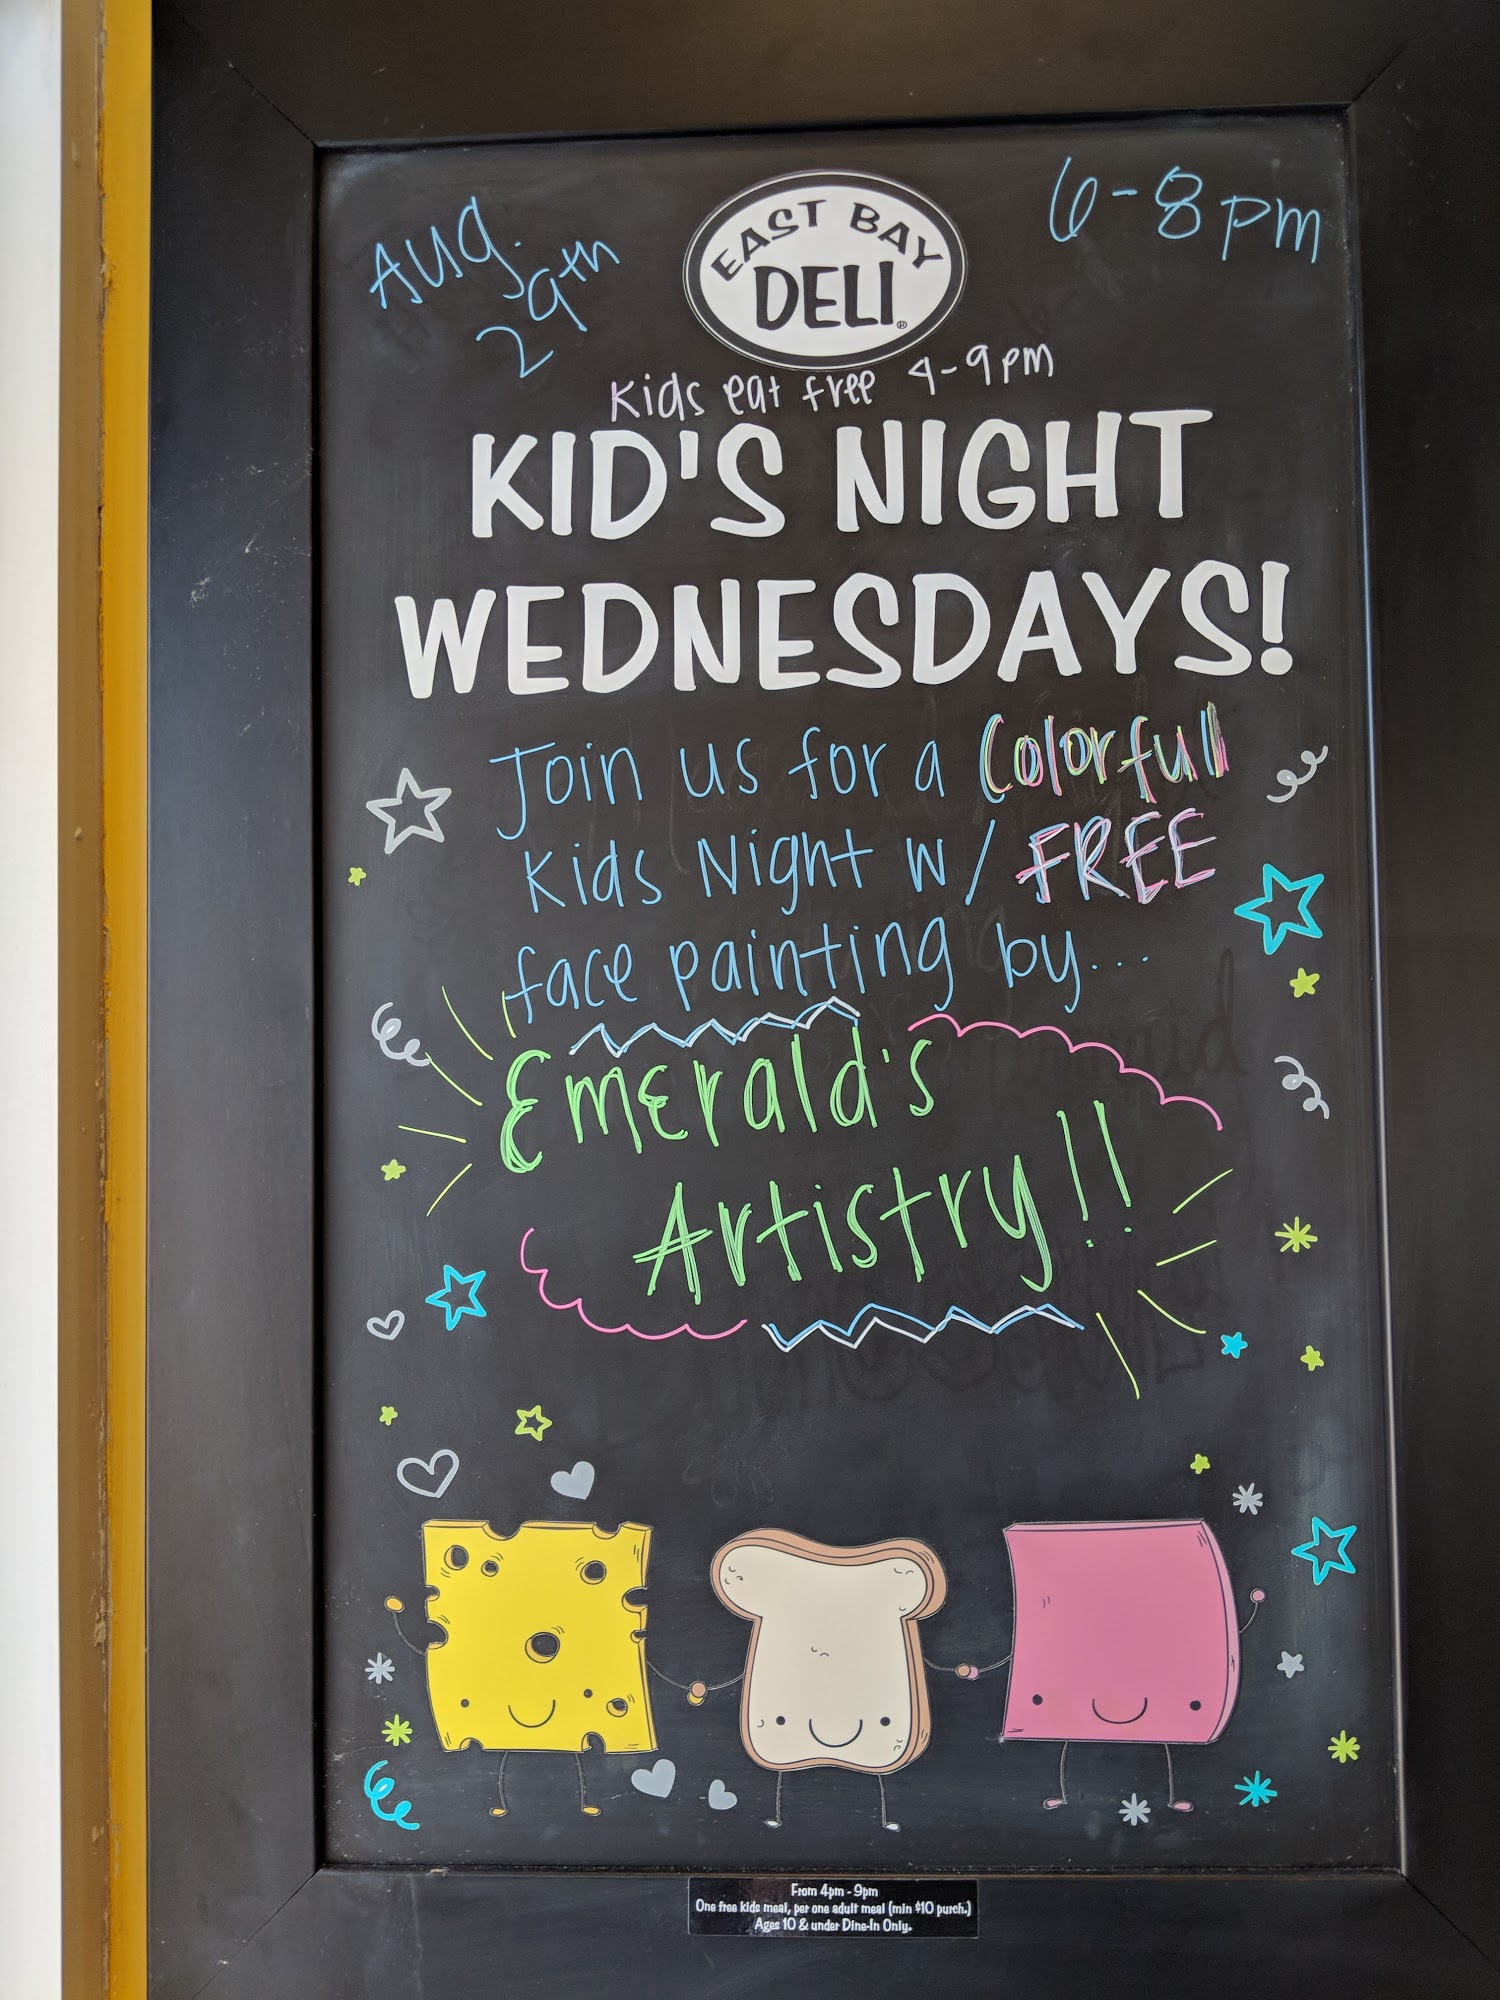 Aug.
29th
6-8pm
EAST BAY
DELI®
Kids eat free 4-9pm
KID'S NIGHT
WEDNESDAYS!
Join us for a Colorful
Kids Night w/ FREE
face painting by...
Emerald's
Artistry!!
From 4pm - 9pm
One free kids meal, per one adult meal (min $10 purch.)
Ages 10 & under Dine-In Only.